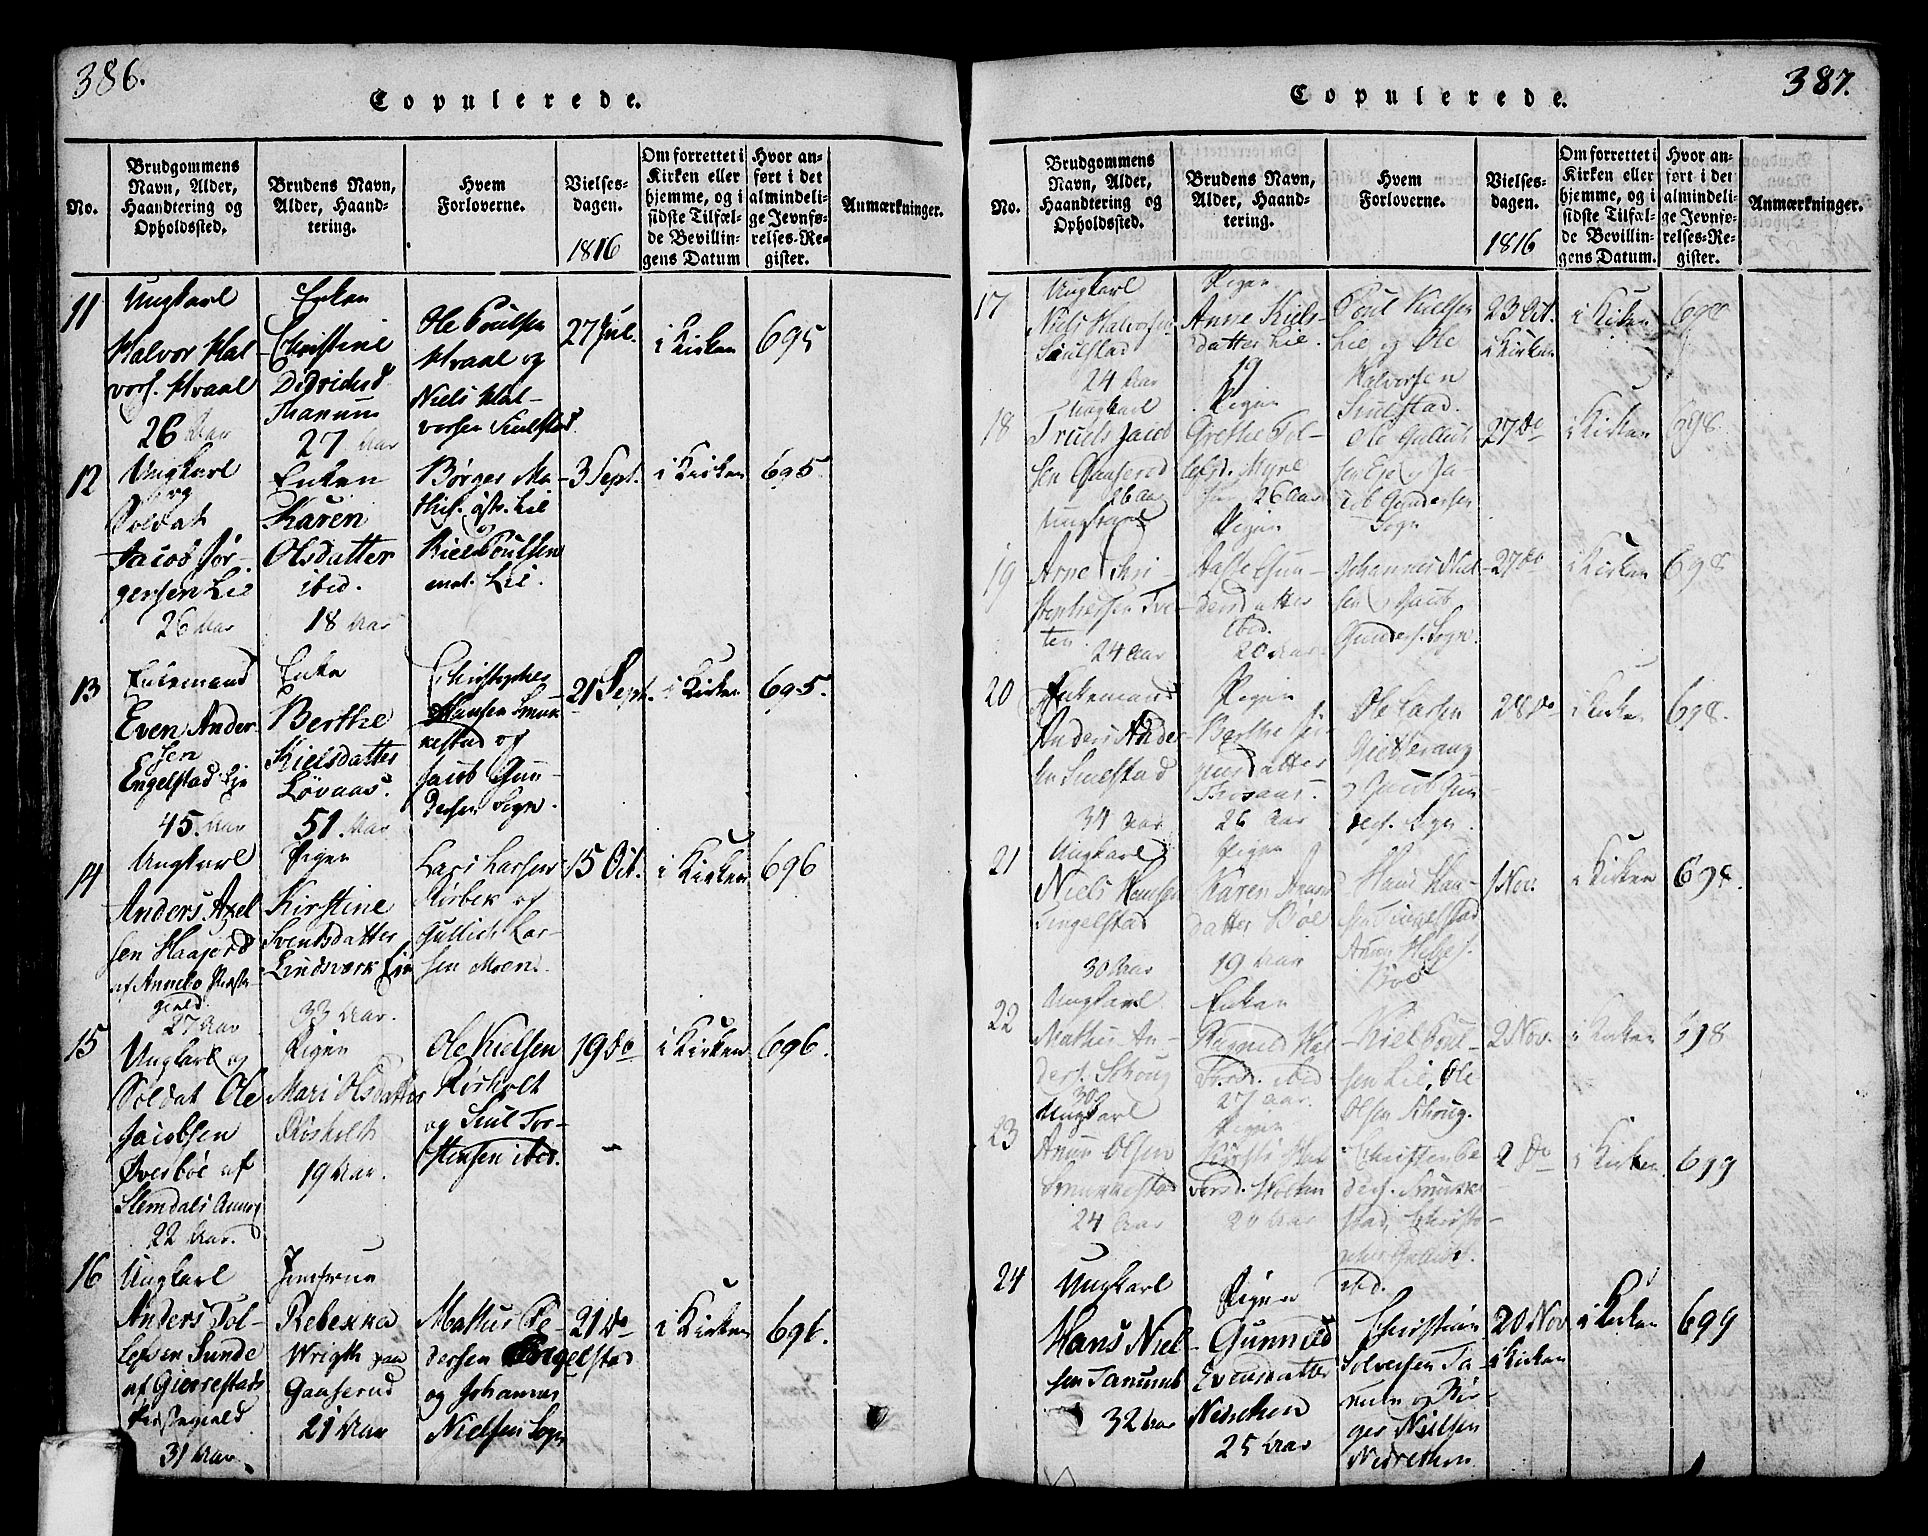 386.
Copulerede.
No.
Brudgommens
Navn, Alder,
Haandtering og
Opholdssted.
Brudens Navn,
Alder, Haand-
tering.
Hvem
Forloverne.
Vielses-
dagen.
1816
Om forrettet i
Kirken eller
hjemme, og i
sidste Tilfæl-
de Bevillin-
gens Datum
Hvor an-
ført i det
almindeli-
ge Jevnfø-
relses-Re-
gister.
Anmærkninger.
11
Ungkarl
Halvor Hal-
vors. Hvaal
26 Aar
Enken
Christine
Didrichsd.
Thanum
27 Aar
Ole Poulsen
Hvaal og
Niels Hal-
vorsen Smilstad
27 Jul.
i Kirken
695
12
Ungkarl
og
Soldat
Jacob Jør-
gensen Lie
26 Aar
Enken
Karen
Olsdatter
ibid.
18 Aar
Børger Ma-
this. østr. Lie
Niels Poulsen
med. Lie.
3 Sept.
i Kirken
695
13
Enkemand
Even Ander-
sen
Engelstad Eje
45. Aar
Enke
Berthe
Kielsdatter
Løvaas.
51. Aar
Christopher
Hansen Smuk-
kestad og
Jacob Gun-
dersen Sogn.
21 Sept.
i Kirken
695.
14
Ungkarl
Anders Axel
sen Haajord
af Annebo Præste
gield.
27 Aar
Pigen
Kirstine
Svendsdatter
Lindsverk Eie
33 Aar.
Lars Larsen
Kirbek og
Gullich Lar-
sen Moen.
15 Oct.
i Kirken
696
15
Ungkarl og
Soldat Ole
Jacobsen
Øverbøe af
Slemdals Annex
22 Aar.
Pigen
Mari Olsdatter
Røsholt
19 Aar.
Ole Nielsen
Røsholt
og Paul Tor-
stensen ibid.
19 do
i Kirken
696.
16
Ungkarl
Anders Tol-
lefsen Sunde
af Gierrestads
Præstegield
31 Aar
Jomfrue
Rebekka
Wrigth paa
Gaaserud
21 Aar
Mathis Pe-
dersen Engelstad
og Johannes
Nielsen Sogn
21 do
i Kirken
696.
387.
Copulerede.
No.
Brudgommens
Navn, Alder,
Haandtering og
Opholdssted.
Brudens Navn,
Alder, Haand-
tering.
Hvem
Forloverne.
Vielses-
dagen.
1816
Om forrettet i
Kirken eller
hjemme, og i
sidste Tilfæl-
de Bevillin-
gens Datum.
Hvor an-
ført i det
almindeli-
ge Jevnfø-
relses-Re-
gister.
Anmærkninger.
17
Ungkarl
Niels Halvorsen
Smilstad
24 Aar
Pigen
Anne Niels-
datter Lie.
19
Poul Nielsen
Lie og Ole
Halvorsen
Smilstad.
23 Oct.
i Kirken
i Kirken
698
18
Ungkarl
Truls Jacob
sen Gaaserud
26 Aar
Pigen
Grethe Tol-
lefsd. Myre
26 Aar
Ole Gullich
sen Eje Ja-
cob Gundersen
Sogn
27 do
i Kirken
698.
19
Ungkarl
Arne Chri-
stophersen Tve-
ten
24 Aar
Aasse Gun-
dersdatter
ibid.
20 Aar.
Johannes Niel-
sen Jacob
Gunders. Sogn.
27 do
i Kirken
698
20
Enkemand
Anders Ander-
sen Smilstad
34 Aar
Pigen
Berthe Jør-
gensdatter
26 Aar
Ole Larsen
Gietterang
Jacob Gun-
ders. Sogn.
28 do
i Kirken
698.
21
Ungkarl
Niels Hansen
Tingelstad
30 Aar
Pigen
Karen Anund
datter Bøe
19 Aar
Hans Han-
sen Tingelstad
Anun Helges.
Bøe
1 Nov.
i Kirken
698.
22
Ungkarl
Mathis An-
ders. Schoug
30
Enken
Ragnild Hal
vorsd. ibid
27 Aar.
Niel Poul-
sen Lie, Ole
Olsen Schoug.
2 Nov.
i Kirken
698
23
Ungkarl
Anun Olsen
Smukkestad
24 Aar
Pigen
Kirsti Hal
vorsd. Holtan
20 Aar
Christen Pe
ders. Smukke-
stad, Christo-
pher
ibid.
2 do
i Kirken
699
24
Ungkarl
Hans Niel-
sen Tanumb
32 Aar
Pigen
Gunnild
Evensdatter
25 Aar
Christian
Solvesen Ta-
num og Bør-
ger Nielsen
Nedrethon
20 Nov
i Kirken
i Kirken
699